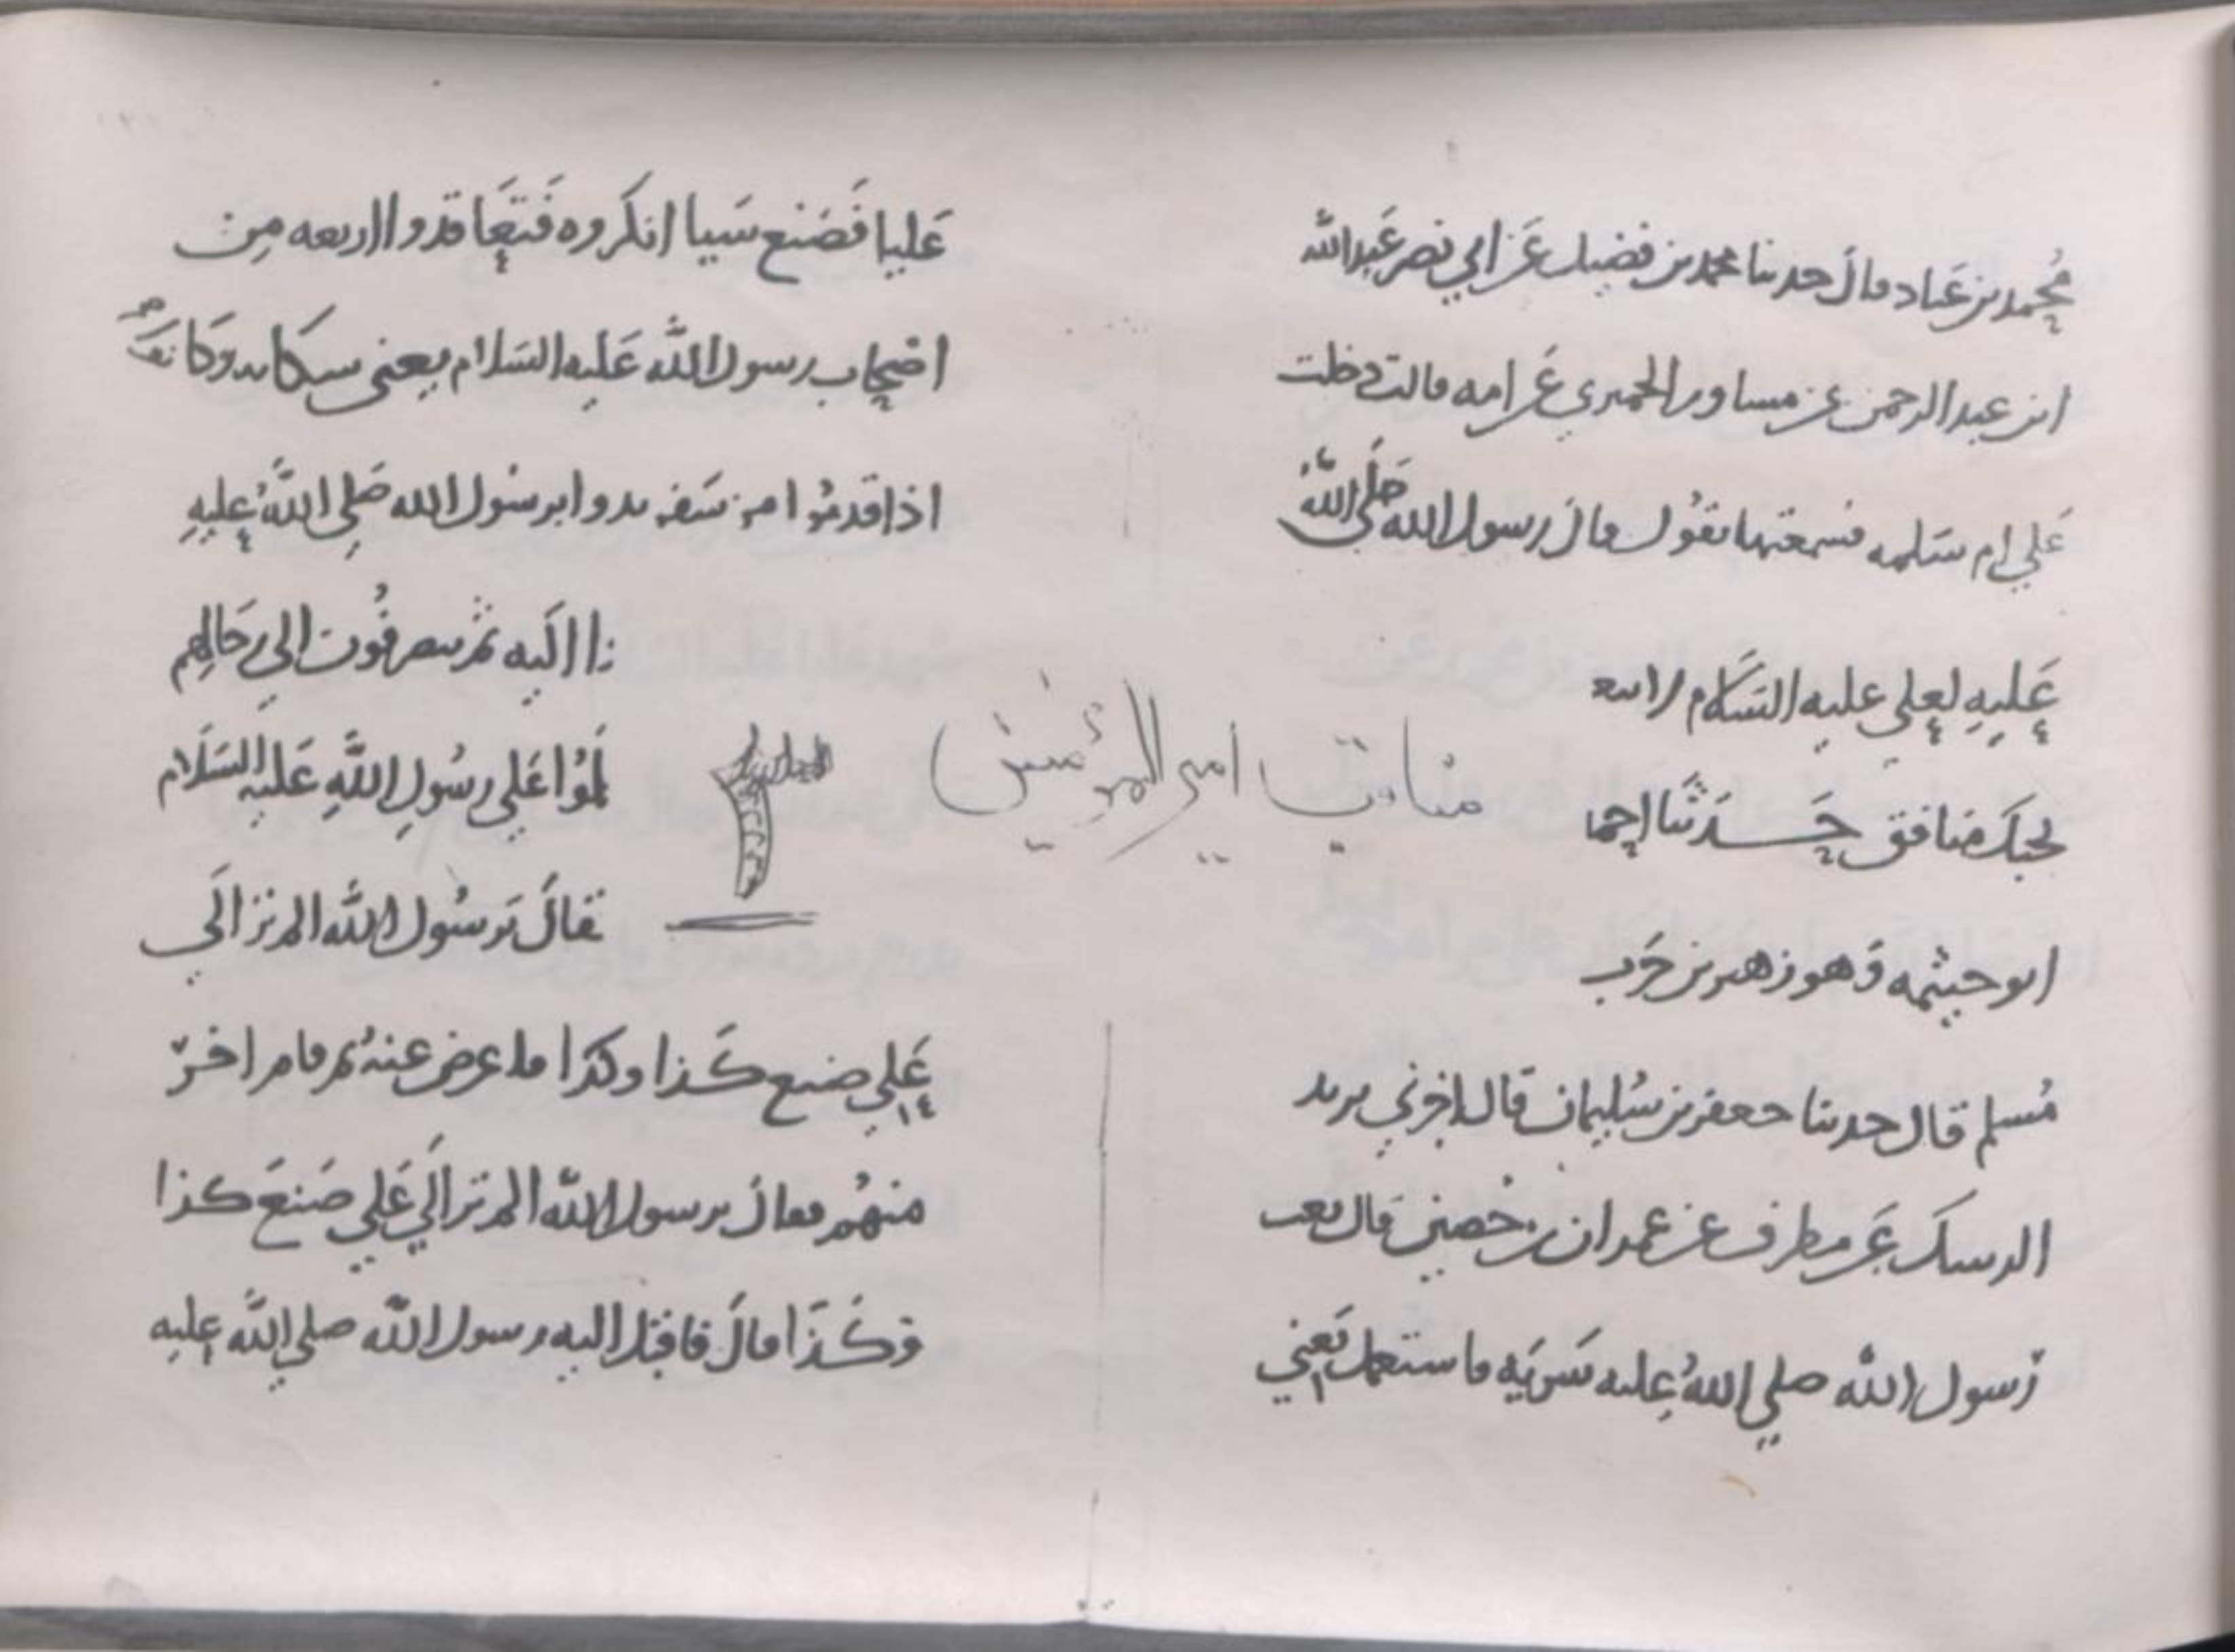 محمد بن عباد قال حدثنا محمد بن فضيل عن ابي نصر عبد الله
ابن عبد الرحمن عن مساور الحميري عن امه قالت دخلت
علي ام سلمه فسمعتها تقول قال رسول الله صلي الله
عليه لعلي عليه السلام
لحبك منافق حدثنا احما
ابو خيثمه وهو زهير بن حرب
مسلم قال حدثنا جعفر بن سليمان قال اخبرني يزيد
الرسك عن مطرف عن عمران بن حصين قال بعث
رسول الله صلي الله عليه سريه فاستعمل يعني
مناقب امير المؤمنين
عليا فصنع شيا انكروه فتعاقدوا اربعه من
اصحاب رسول الله عليه السلام يعني
اذا قدموا من سفر بدوا برسول الله صلي الله عليه
اليه ثم ينصرفون الي رحالهم
لموا علي رسول الله عليه السلام
فقال يرسول الله الم تر الي
علي صنع كذا وكذا فاعرض عنه ثم قام اخر
منهم فقال يرسول الله الم تر الي علي صنع كذا
وكذا قال فاقبل اليه رسول الله صلي الله عليه